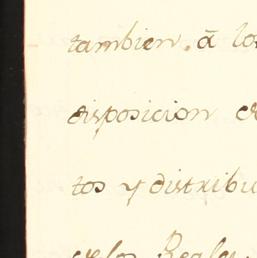 tambien, ā los
disposicion de
tos y distribu
de los Reales